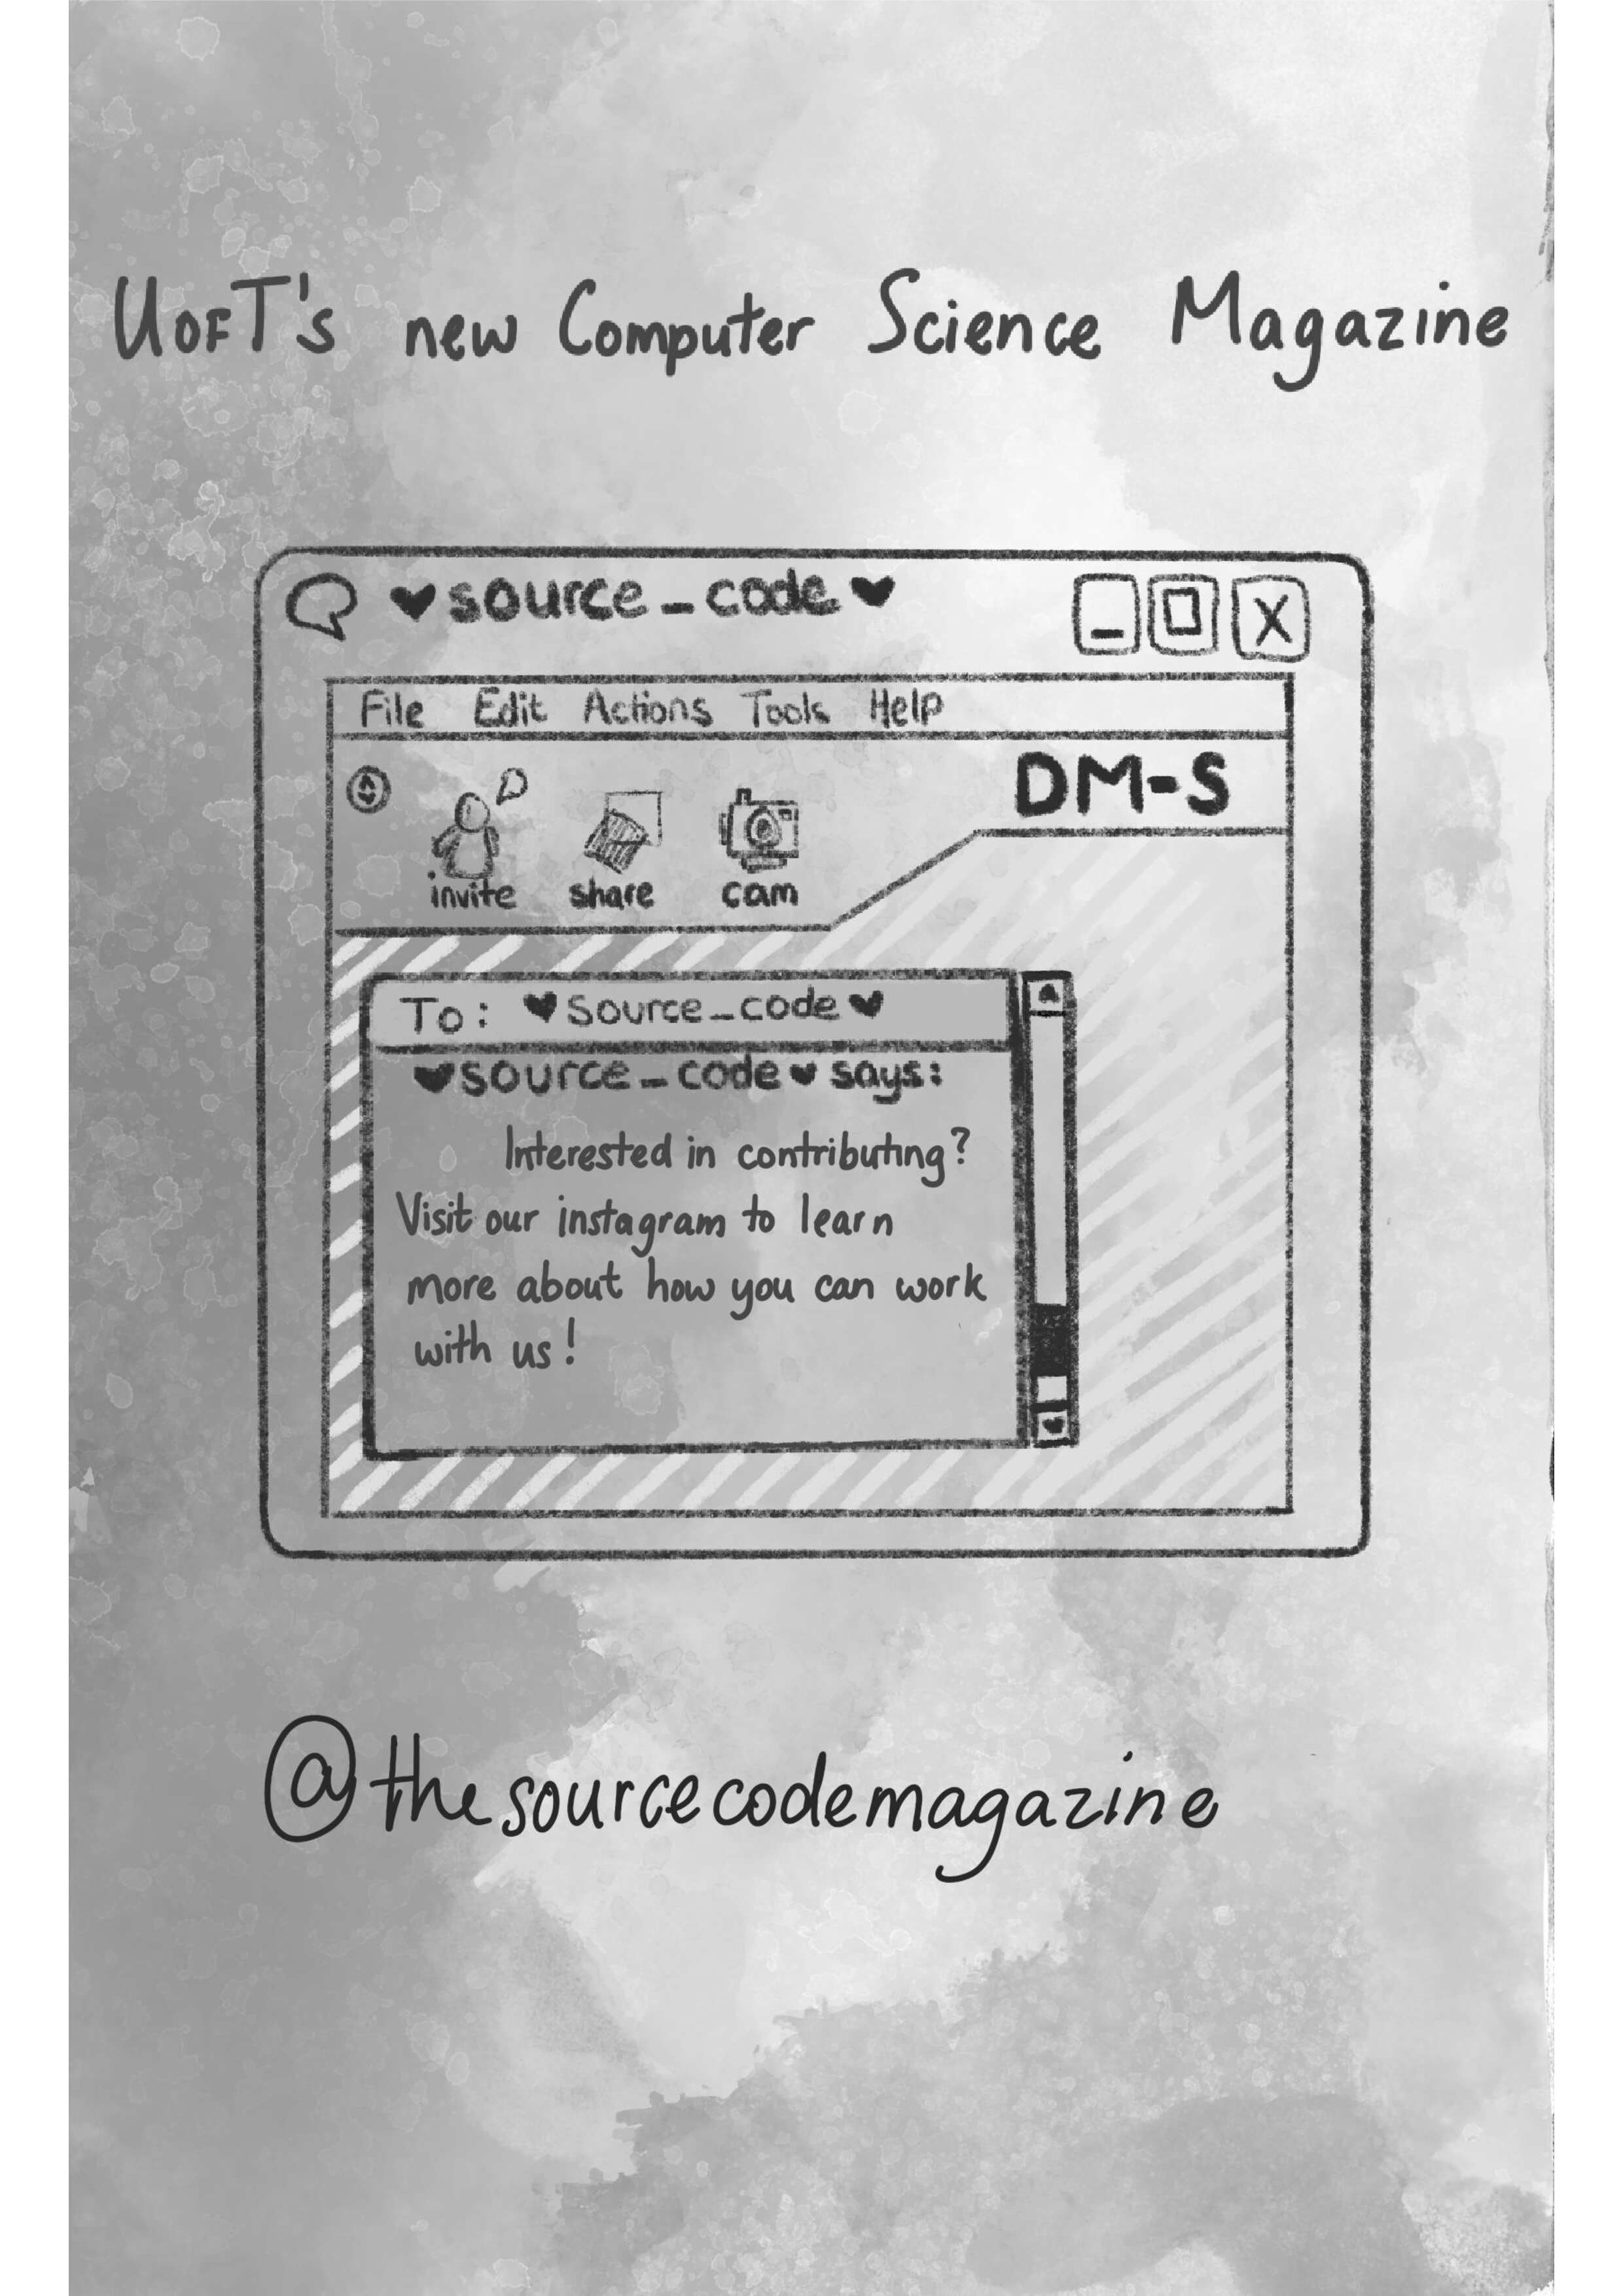 UofT's new Computer Science Magazine
♥source_code♥
File Edit Actions Tools Help
DM-S
invite share cam
To: ♥source_code♥
♥source_code♥ says:
Interested in contributing?
Visit our instagram to learn
more about how you can work
with us!
@thesourcecodemagazine